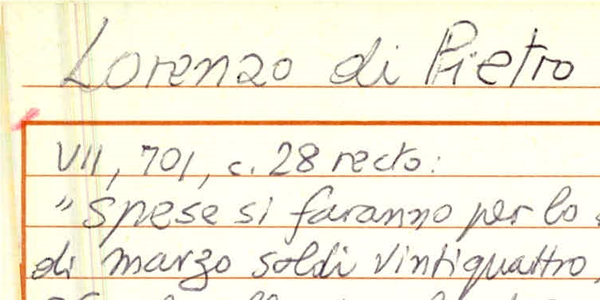 Lorenzo di Pietro
VII, 701, c. 28 recto:
"Spese si faranno per lo
di marzo soldi vintiquattro,